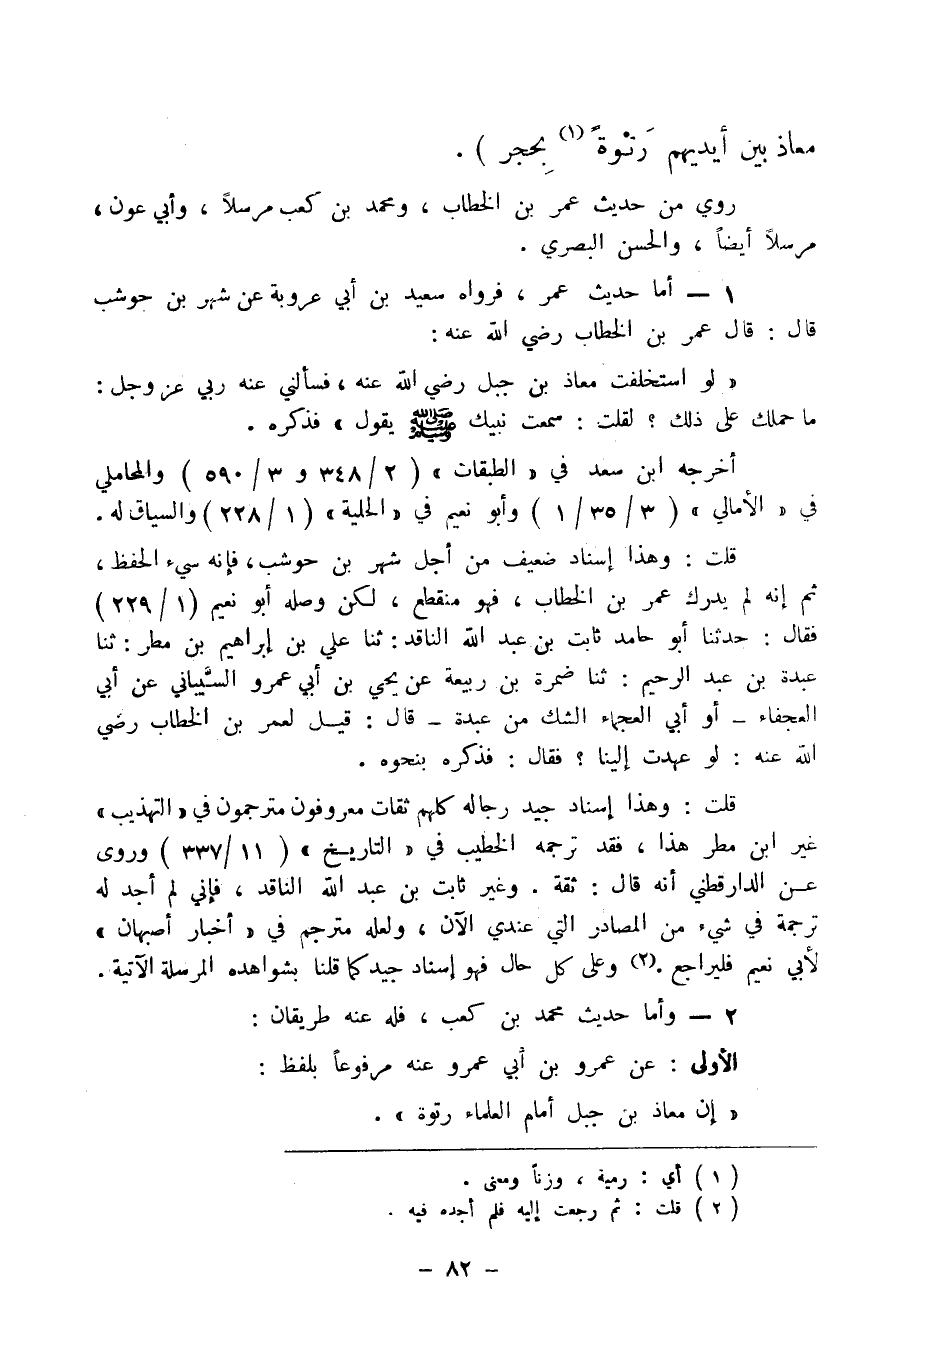 معاذ بين أيديهم رَتْوةً (١) بِحجر ) .
روي من حديث عمر بن الخطاب ، ومحمد بن كعب مرسلاً ، وأبي عون ،
مرسلاً أيضاً ، والحسن البصري .
١ – أما حديث عمر ، فرواه سعيد بن أبي عروبة عن شهر بن حوشب
قال : قال عمر بن الخطاب رضي الله عنه :
« لو استخلفت معاذ بن جبل رضي الله عنه ، فسألني عنه ربي عز وجل :
ما حملك على ذلك ؟ لقلت : سمعت نبيك ﷺ يقول » فذكره .
أخرجه ابن سعد في « الطبقات » ( ٢ / ٣٤٨ و ٣ / ٥٩٠ ) والمحاملي
في « الأمالي » ( ٣ / ٣٥ / ١ ) وأبو نعيم في « الحلية » ( ١ / ٢٢٨ ) والسياق له .
قلت : وهذا إسناد ضعيف من أجل شهر بن حوشب ، فإنه سيء الحفظ ،
ثم إنه لم يدرك عمر بن الخطاب ، فهو منقطع ، لكن وصله أبو نعيم ( ١ / ٢٢٩ )
فقال : حدثنا أبو حامد ثابت بن عبد الله الناقد : ثنا علي بن إبراهيم بن مطر : ثنا
عبدة بن عبد الرحيم : ثنا ضمرة بن ربيعة عن يحيى بن أبي عمرو السَّيباني عن أبي
العجفاء – أو أبي العجماء الشك من عبدة – قال : قيل لعمر بن الخطاب رضي
الله عنه : لو عهدت إلينا ؟ فقال : فذكره بنحوه .
قلت : وهذا إسناد جيد رجاله كلهم ثقات معروفون مترجمون في « التهذيب »
غير ابن مطر هذا ، فقد ترجمه الخطيب في « التاريخ » ( ١١ / ٣٣٧ ) وروى
عن الدارقطني أنه قال : ثقة . وغير ثابت بن عبد الله الناقد ، فإني لم أجد له
ترجمة في شيء من المصادر التي عندي الآن ، ولعله مترجم في « أخبار أصبهان »
لأبي نعيم فليراجع . (٢) وعلى كل حال فهو إسناد جيد كما قلنا بشواهده المرسلة الآتية .
٢ – وأما حديث محمد بن كعب ، فله عنه طريقان :
الأولى : عن عمرو بن أبي عمرو عنه مرفوعاً بلفظ :
« إن معاذ بن جبل أمام العلماء رتوة » .
( ١ ) أي : رمية ، وزناً ومعنى .
( ٢ ) قلت : ثم رجعت إليه فلم أجده فيه .
– ٨٢ –